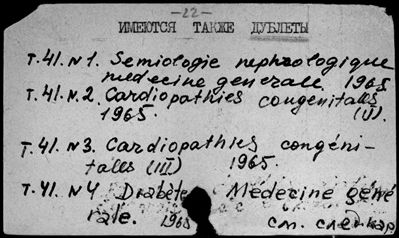 -22-
ИМЕЮТСЯ ТАКЖЕ ДУБЛЕТЫ
Т.41. N1. Semiologie nephrologique
medecine generale 1965
Т.41. N.2. Cardiopathies congenitalls
1965. (II).
Т.41. N3. Cardiopathies congéni-
talls (III) 1965.
Т.41. N4 Diabète Médecine géné
rale. 1965 см. след кар